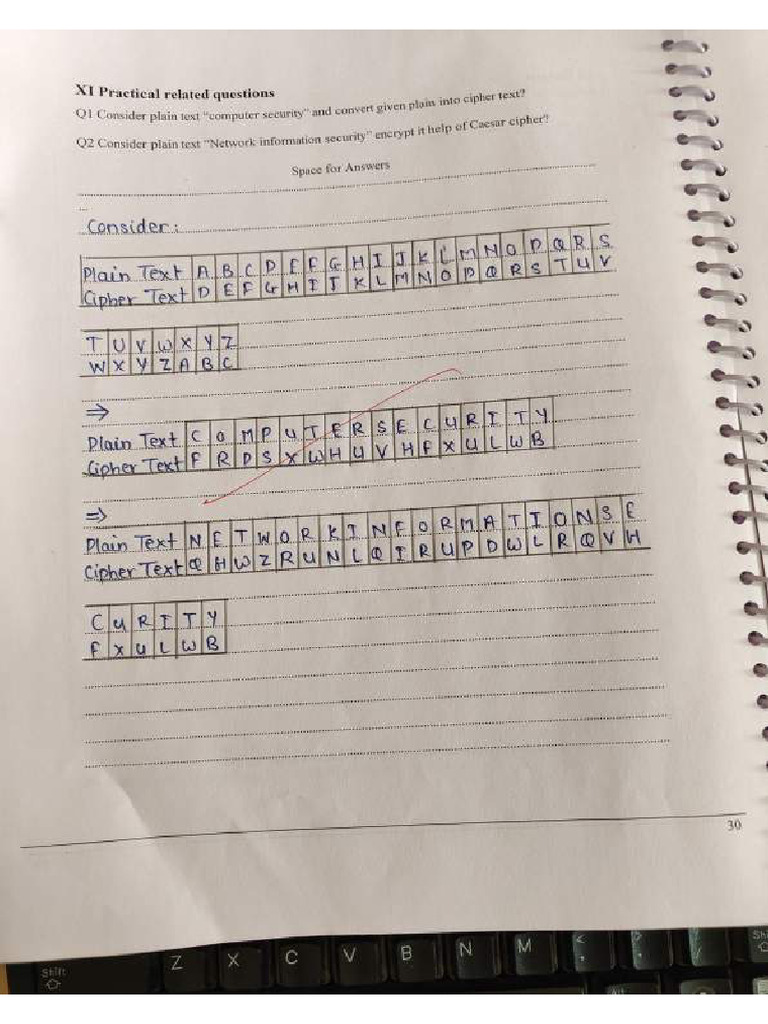 XI Practical related questions
Q1 Consider plain text "computer security" and convert given plain into cipher text?
Q2 Consider plain text "Network information security" encrypt it help of Caesar cipher?
Space for Answers
Consider:
Plain Text A B C D E F G H I J K L M N O P Q R S
Cipher Text D E F G H I J K L M N O P Q R S T U V
T U V W X Y Z
W X Y Z A B C
⇒
Plain Text C O M P U T E R S E C U R I T Y
Cipher Text F R D S X W H U V H F X U L W B
⇒
Plain Text N E T W O R K I N F O R M A T I O N S E
Cipher Text Q H W Z R U N L Q I R U P D W L R Q V H
C U R I T Y
F X U L W B
30
Shift Z X C V B N M < > ? Shi